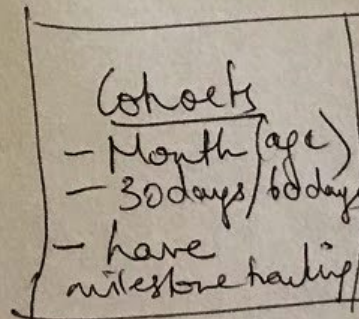 Cohorts
- Month (age)
- 30days/60days
- have
milestone tracking/